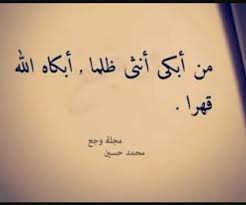 من أبكى أنثى ظلما , أبكاه الله
قهرا .
مجلة وجع
محمد حسين